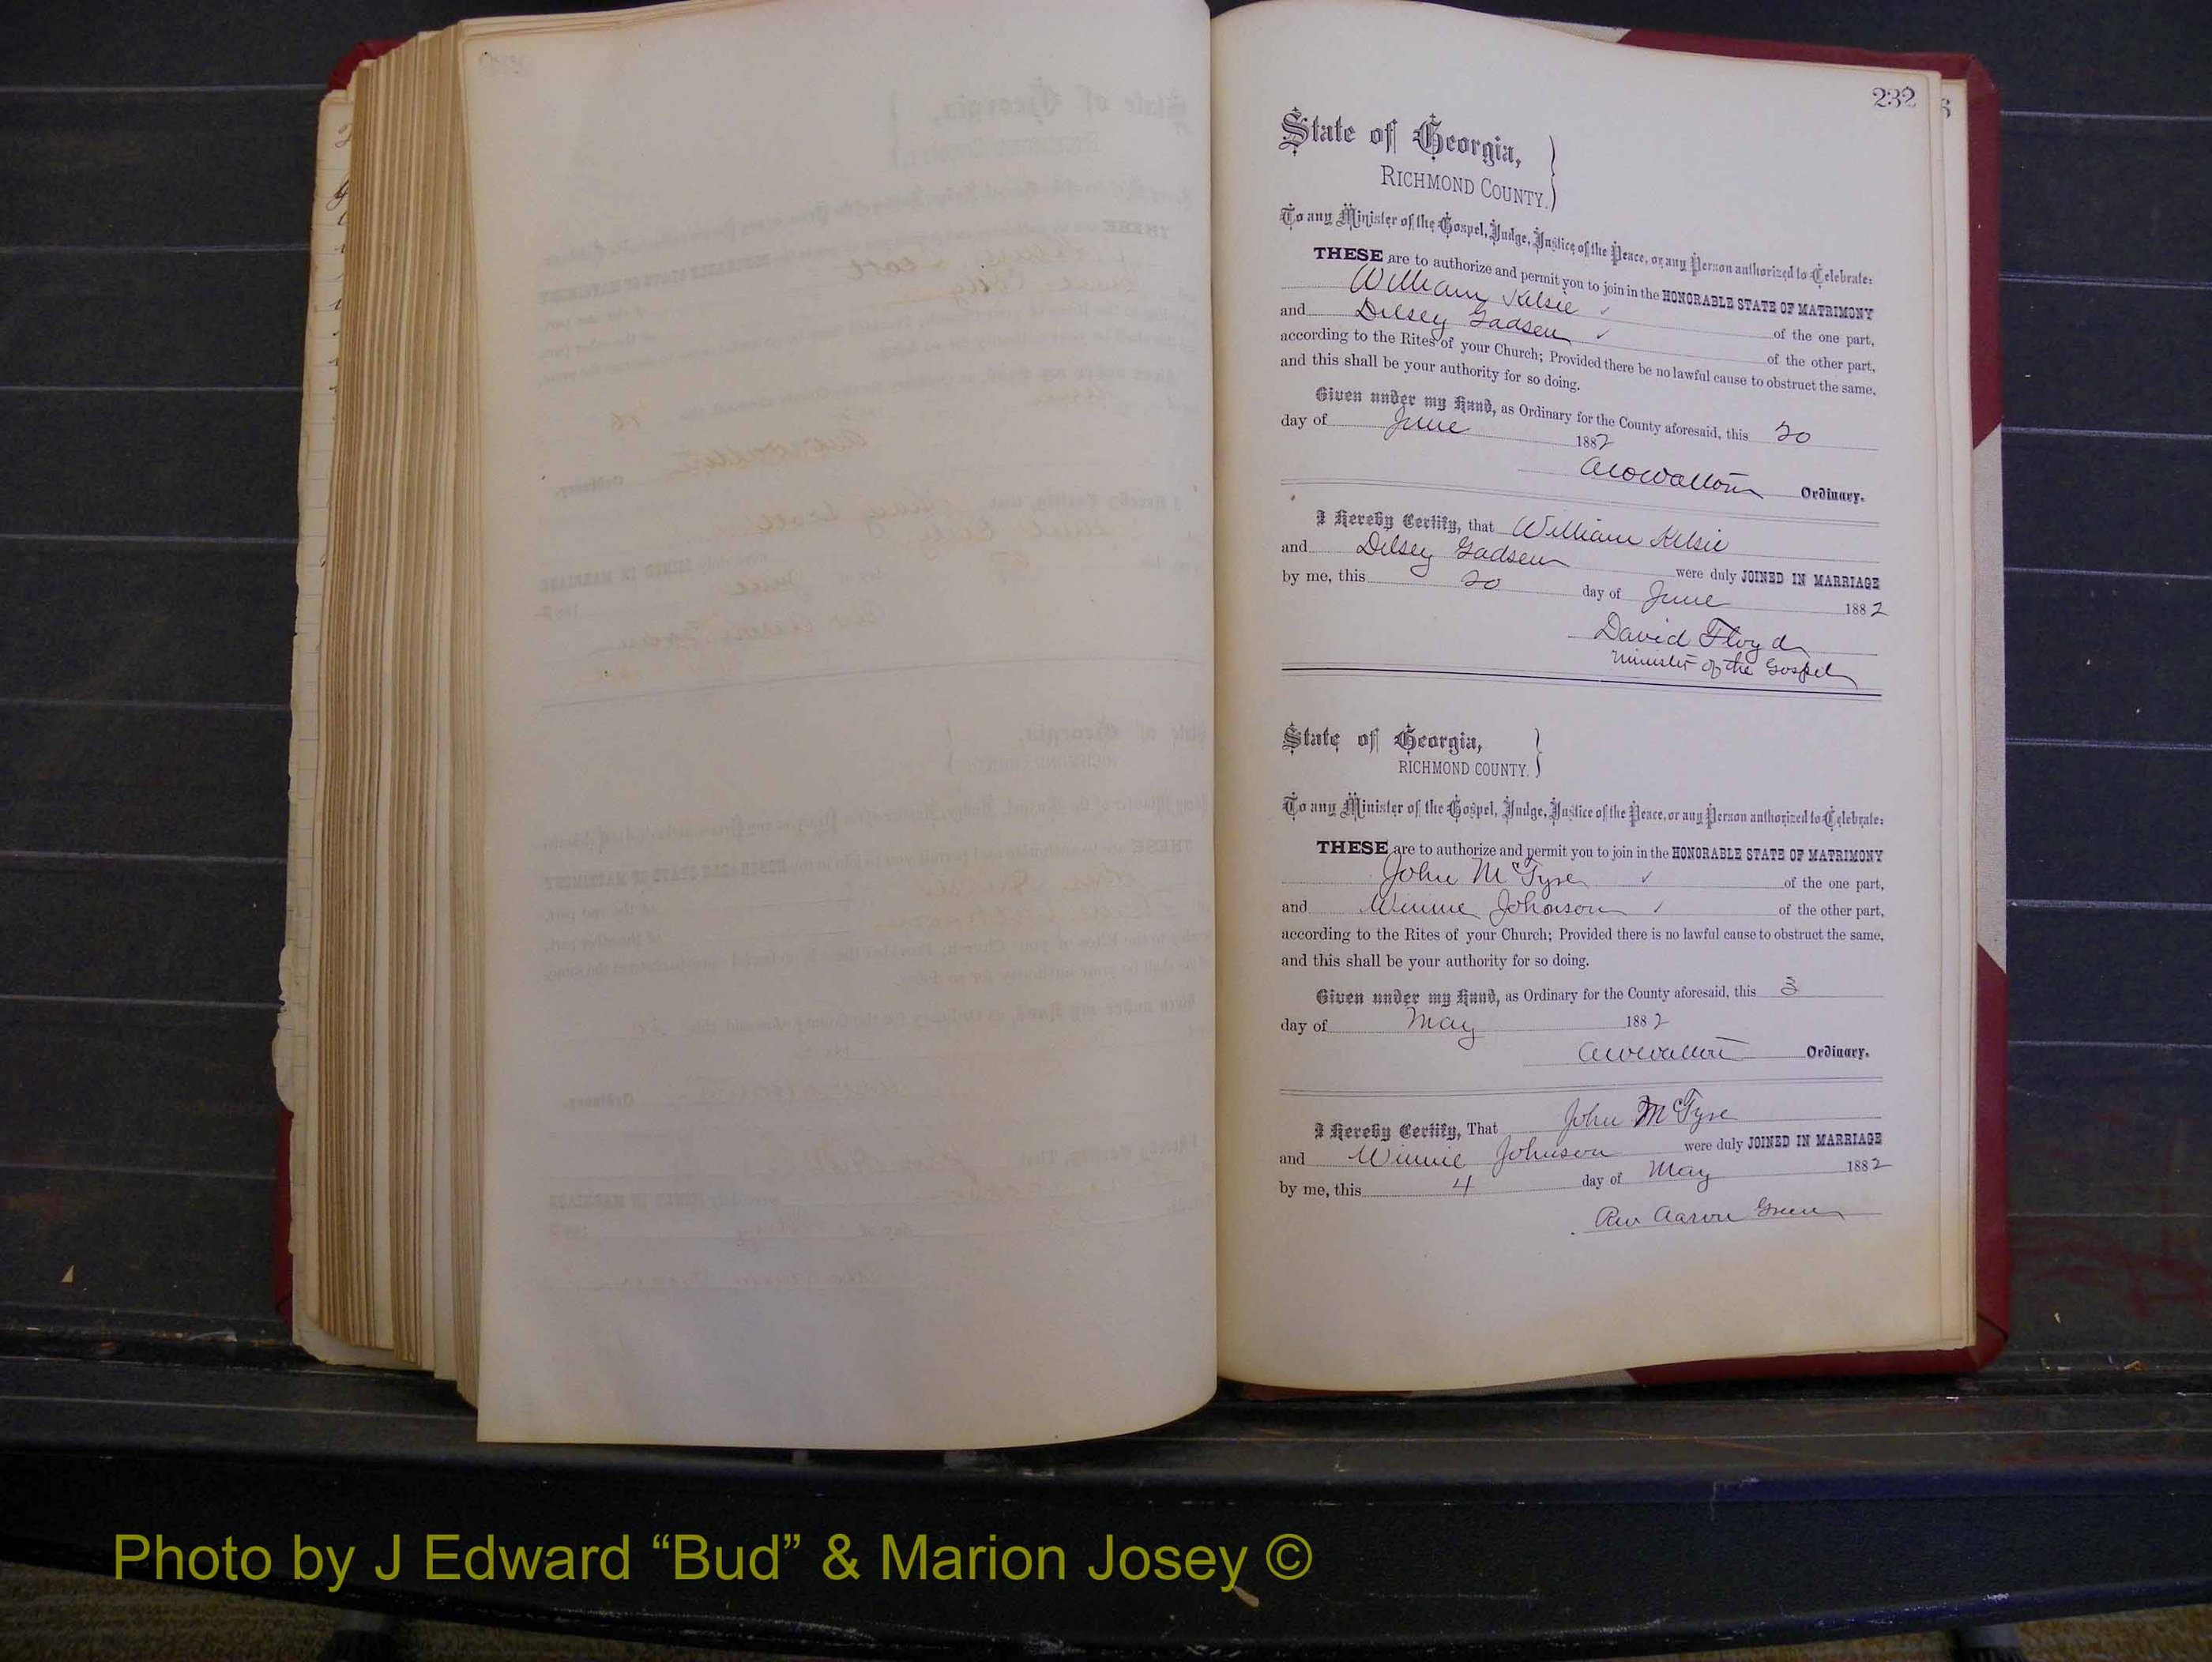 232
State of Georgia,
RICHMOND COUNTY.
To any Minister of the Gospel, Judge, Justice of the Peace, or any Person authorized to Celebrate:
THESE are to authorize and permit you to join in the HONORABLE STATE OF MATRIMONY
William Kelsie of the one part,
and Dilsey Gadsen of the other part,
according to the Rites of your Church; Provided there be no lawful cause to obstruct the same,
and this shall be your authority for so doing.
Given under my Hand, as Ordinary for the County aforesaid, this 20
day of June 1882
Ordinary.
I Hereby Certify, that William Kelsie
and Dilsey Gadsen were duly JOINED IN MARRIAGE
by me, this 20 day of June 1882
David Floyd
Minister of the Gospel
State of Georgia,
RICHMOND COUNTY.
To any Minister of the Gospel, Judge, Justice of the Peace, or any Person authorized to Celebrate:
THESE are to authorize and permit you to join in the HONORABLE STATE OF MATRIMONY
John McTyre of the one part,
and Winnie Johnson of the other part,
according to the Rites of your Church; Provided there is no lawful cause to obstruct the same,
and this shall be your authority for so doing.
Given under my Hand, as Ordinary for the County aforesaid, this 3
day of May 1882
Ordinary.
I Hereby Certify, That John McTyre
and Winnie Johnson were duly JOINED IN MARRIAGE
by me, this 4 day of May 1882
Rev Aaron Green
Photo by J Edward “Bud” & Marion Josey ©